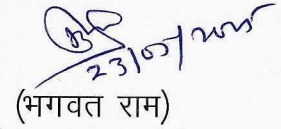 23/05/2025
(भगवत राम)